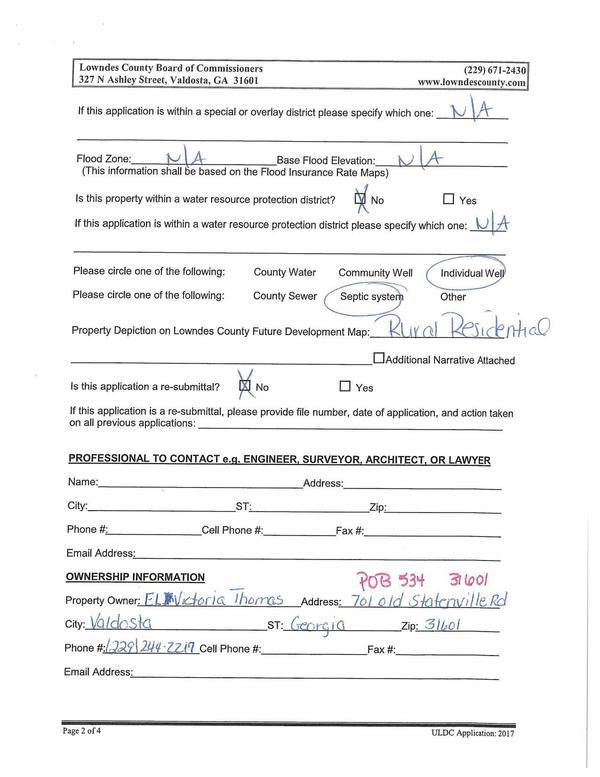 Lowndes County Board of Commissioners (229) 671-2430
327 N Ashley Street, Valdosta, GA 31601 www.lowndescounty.com
If this application is within a special or overlay district please specify which one: N/A
Flood Zone: N/A Base Flood Elevation: N/A
(This information shall be based on the Flood Insurance Rate Maps)
Is this property within a water resource protection district? ☒ No ☐ Yes
If this application is within a water resource protection district please specify which one: N/A
Please circle one of the following: County Water Community Well Individual Well
Please circle one of the following: County Sewer Septic system Other
Property Depiction on Lowndes County Future Development Map: Rural Residential
☐Additional Narrative Attached
Is this application a re-submittal? ☒ No ☐ Yes
If this application is a re-submittal, please provide file number, date of application, and action taken
on all previous applications:
PROFESSIONAL TO CONTACT e.g. ENGINEER, SURVEYOR, ARCHITECT, OR LAWYER
Name: Address:
City: ST: Zip:
Phone #: Cell Phone #: Fax #:
Email Address:
OWNERSHIP INFORMATION POB 534 31601
Property Owner: Victoria Thomas Address: 701 old Statenville Rd
City: Valdosta ST: Georgia Zip: 31601
Phone #: (229) 244-2217 Cell Phone #: Fax #:
Email Address:
Page 2 of 4 ULDC Application: 2017